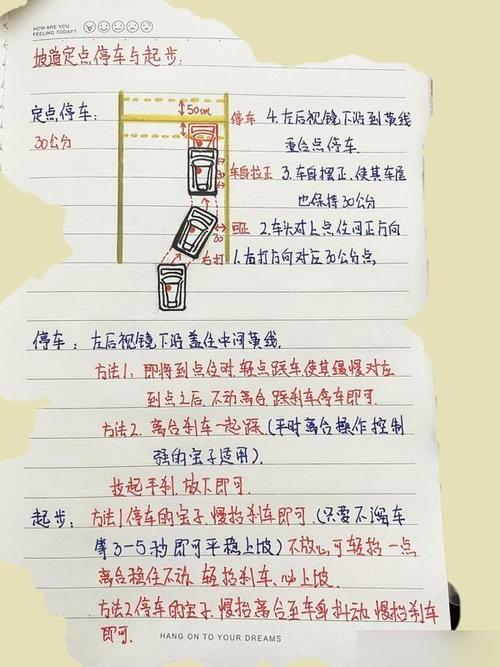 HOW ARE YOU
FEELING TODAY?
坡道定点停车与起步:
定点停车:
30公分
50cm
停车 4.左后视镜下沿到黄线
重合点停车.
车身拉正 3.车身摆正.使其车尾
也保持30公分
30
回正 2.车头对上点位回正方向
30
右打 1.右打方向对应30公分点,
停车: 左后视镜下沿盖住中间黄线.
方法1: 即将到点位时,轻点踩车,使其缓慢对应
到点之后.不动离合.踩刹车停车即可.
方法2. 离合刹车一起踩.(平时离合操作控制
强的宝子适用).
拉起手刹.放下即可.
起步: 方法1停车的宝子.慢抬刹车即可.(只要不溜车
等3-5秒即可平稳上坡)不放心,可轻抬一点
离合稳住不动.轻抬刹车.心上坡.
方法2.停车的宝子.慢抬离合至车身抖动.慢抬刹车
即可.
HANG ON TO YOUR DREAMS